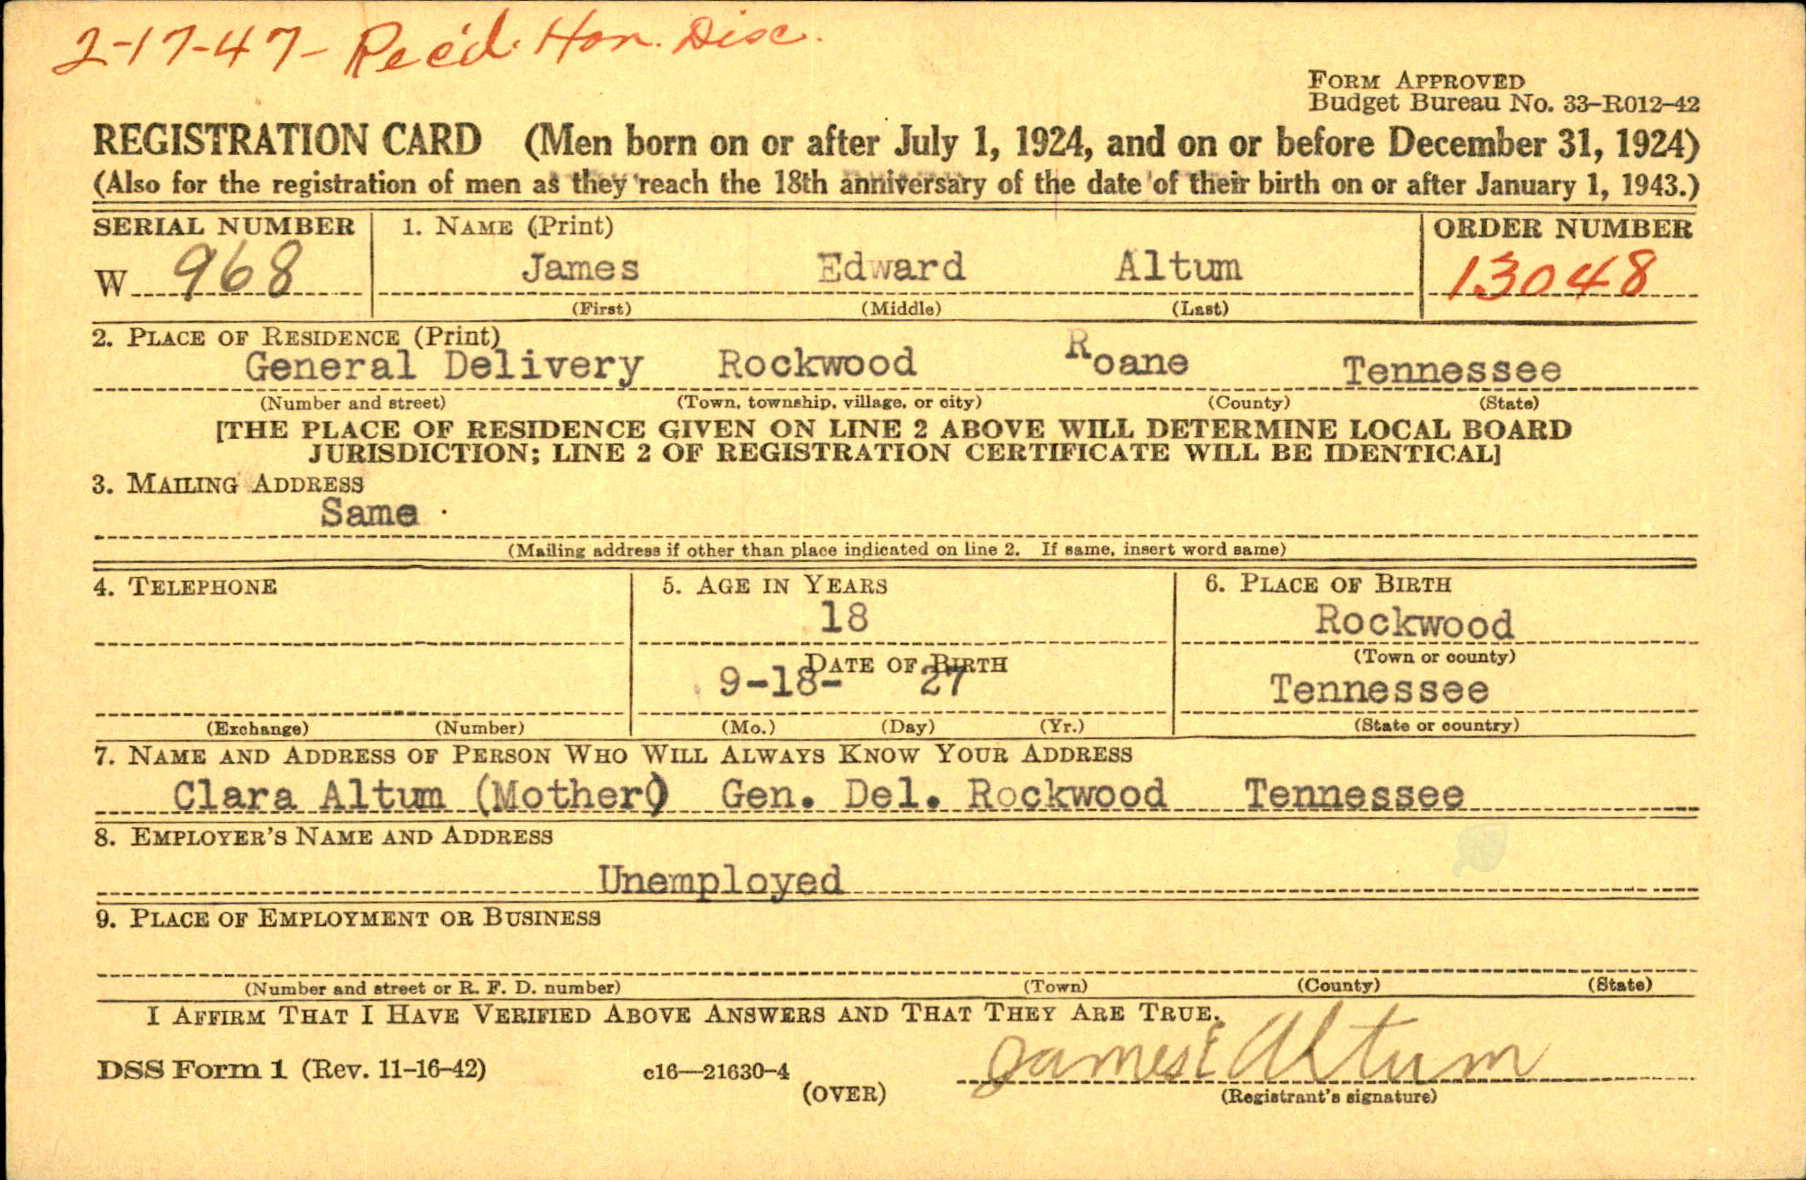 2-17-47- Rec'd. Hon. Disc.
FORM APPROVED
Budget Bureau No. 33-R012-42
REGISTRATION CARD (Men born on or after July 1, 1924, and on or before December 31, 1924)
(Also for the registration of men as they reach the 18th anniversary of the date of their birth on or after January 1, 1943.)
SERIAL NUMBER 1. NAME (Print) ORDER NUMBER
W 968 James Edward Altum 13048
(First) (Middle) (Last)
2. PLACE OF RESIDENCE (Print)
General Delivery Rockwood Roane Tennessee
(Number and street) (Town, township, village, or city) (County) (State)
[THE PLACE OF RESIDENCE GIVEN ON LINE 2 ABOVE WILL DETERMINE LOCAL BOARD
JURISDICTION; LINE 2 OF REGISTRATION CERTIFICATE WILL BE IDENTICAL]
3. MAILING ADDRESS
Same
(Mailing address if other than place indicated on line 2. If same, insert word same)
4. TELEPHONE 5. AGE IN YEARS 6. PLACE OF BIRTH
18 Rockwood
DATE OF BIRTH (Town or county)
9-18- 27 Tennessee
(Exchange) (Number) (Mo.) (Day) (Yr.) (State or country)
7. NAME AND ADDRESS OF PERSON WHO WILL ALWAYS KNOW YOUR ADDRESS
Clara Altum (Mother) Gen. Del. Rockwood Tennessee
8. EMPLOYER'S NAME AND ADDRESS
Unemployed
9. PLACE OF EMPLOYMENT OR BUSINESS
(Number and street or R. F. D. number) (Town) (County) (State)
I AFFIRM THAT I HAVE VERIFIED ABOVE ANSWERS AND THAT THEY ARE TRUE.
DSS Form 1 (Rev. 11-16-42) c16—21630-4 James E Altum
(OVER) (Registrant's signature)